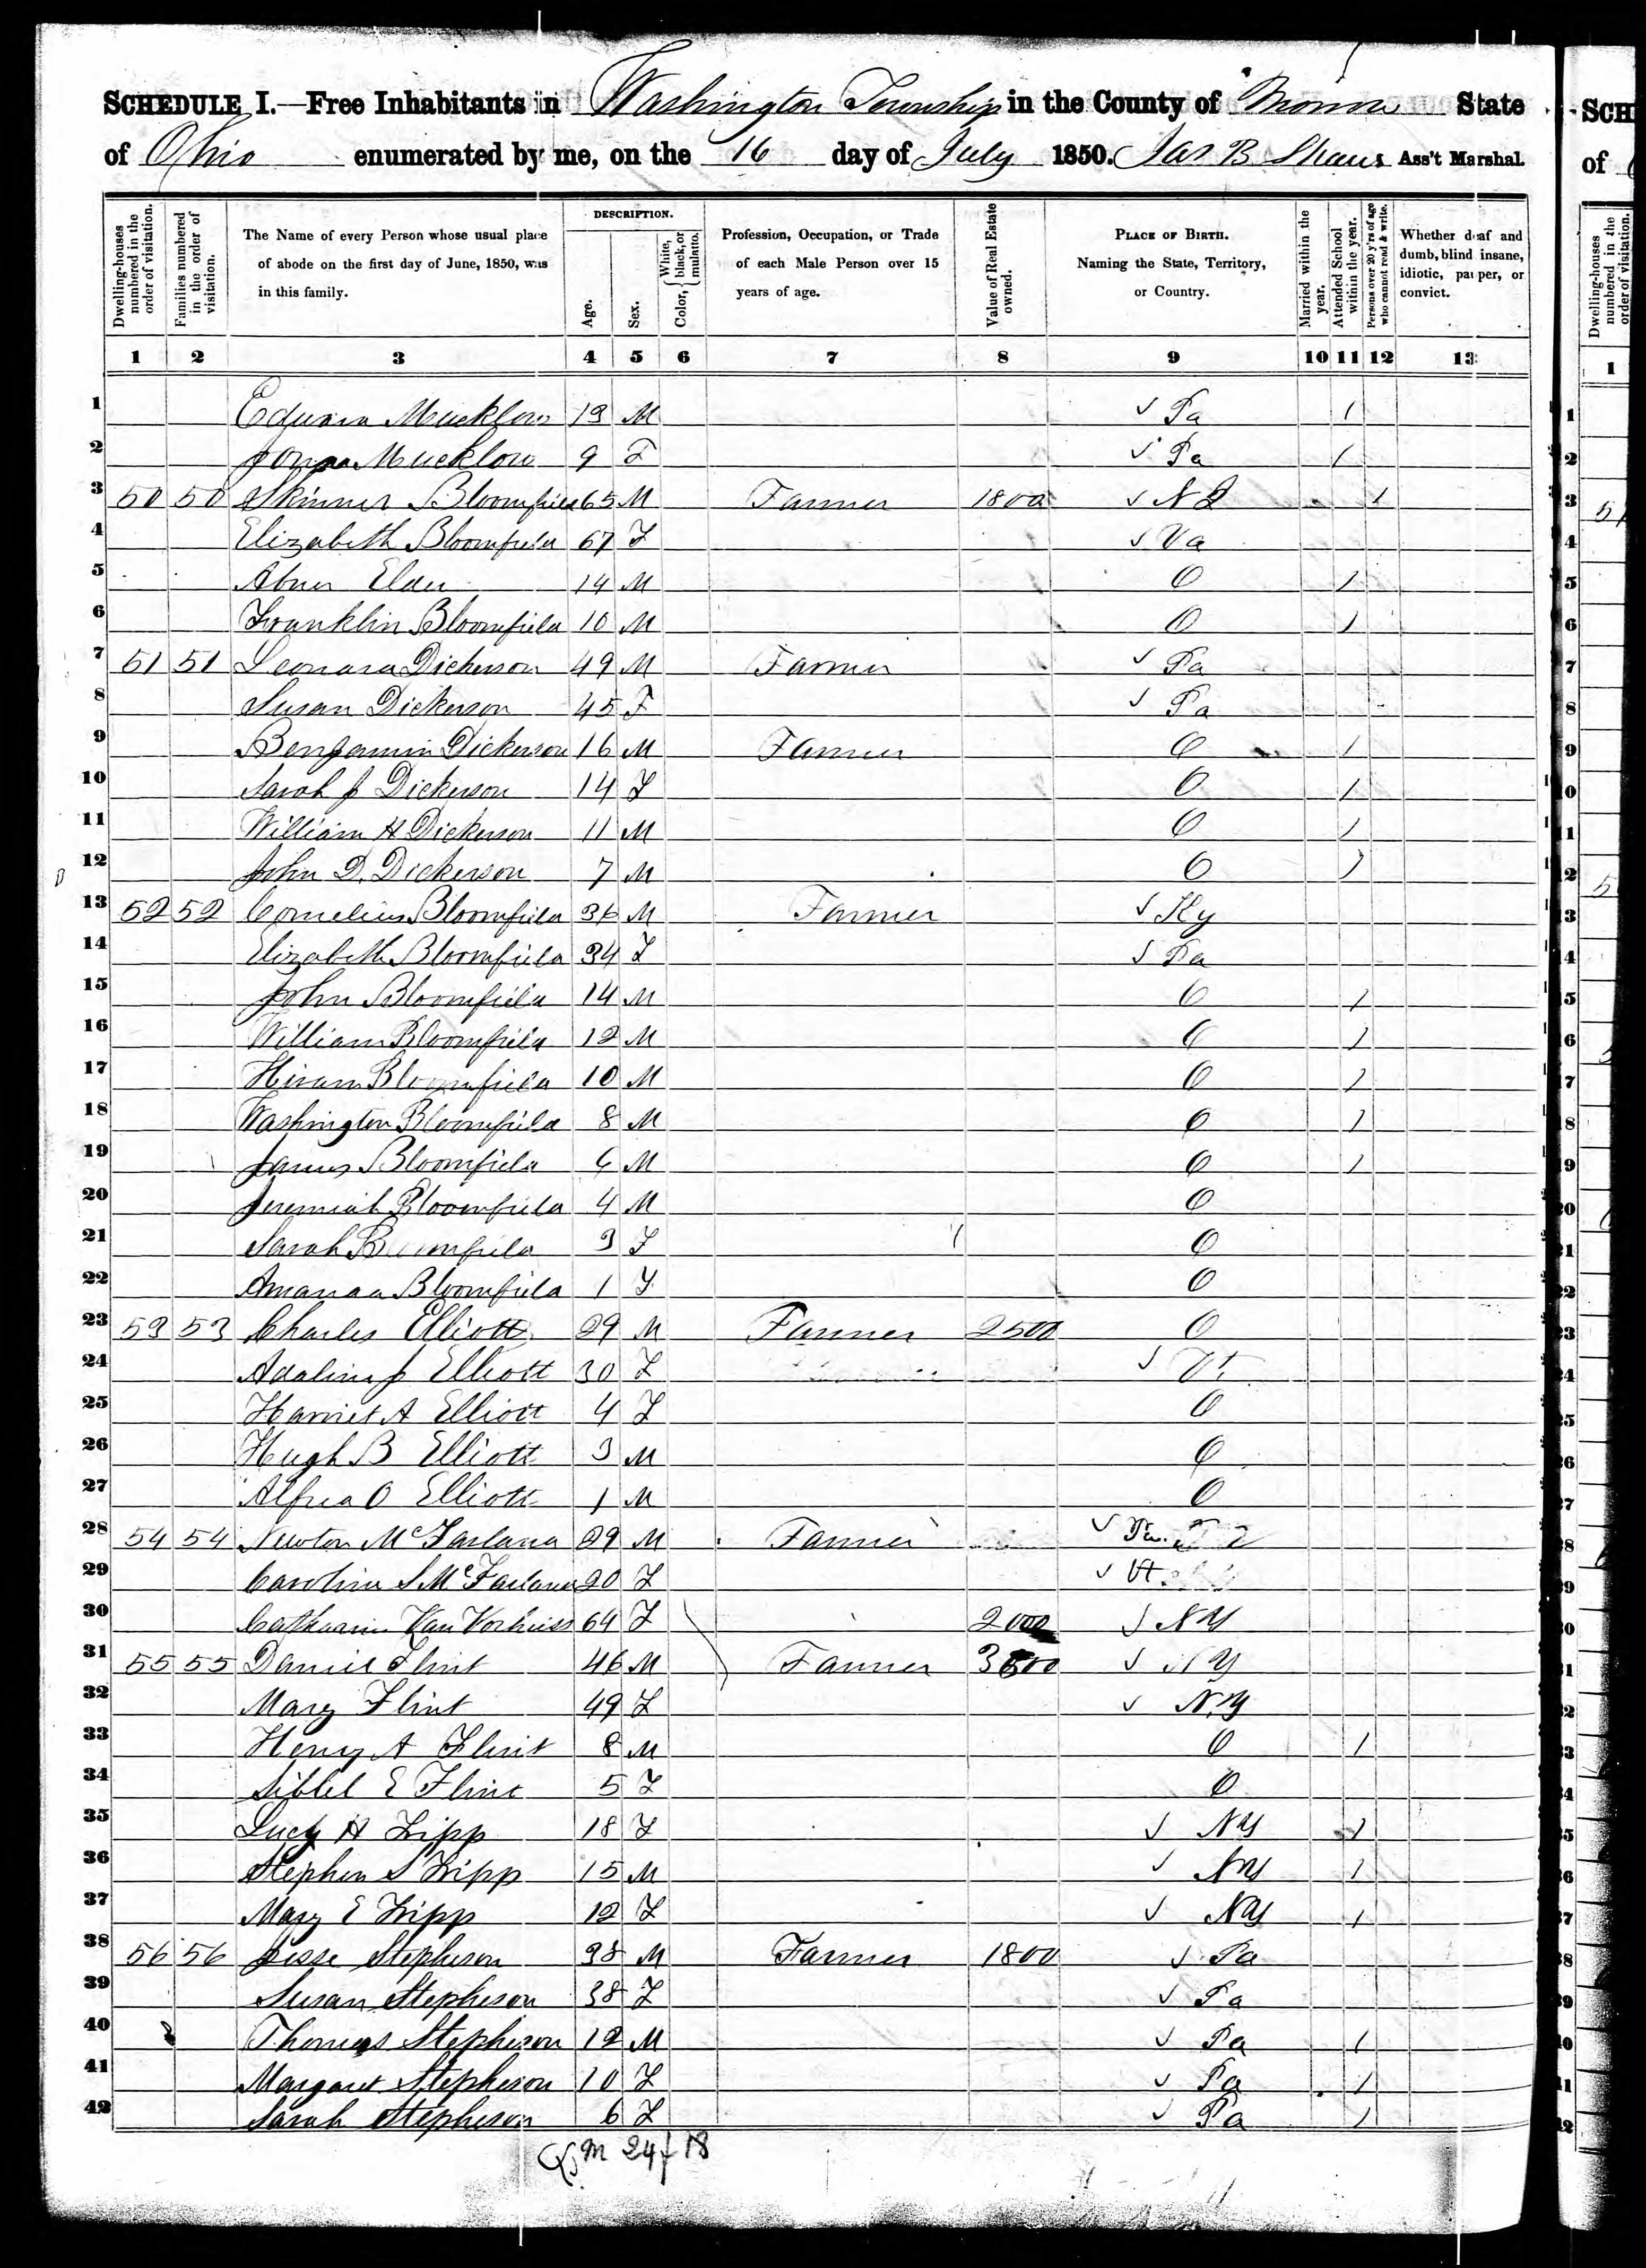 SCHEDULE I.—Free Inhabitants in Washington Township in the County of State
of Ohio enumerated by me, on the 16 day of July 1850. Jas B Ass't Marshal.
Dwelling-houses numbered in the order of visitation.
Families numbered in the order of visitation.
The Name of every Person whose usual place of abode on the first day of June, 1850, was in this family.
DESCRIPTION.
Age.
Sex.
Color, { White, black, or mulatto.
Profession, Occupation, or Trade of each Male Person over 15 years of age.
Value of Real Estate owned.
PLACE OF BIRTH. Naming the State, Territory, or Country.
Married within the year.
Attended School within the year.
Persons over 20 y'rs of age who cannot read & write.
Whether deaf and dumb, blind insane, idiotic, pauper, or convict.
1 2 3 4 5 6 7 8 9 10 11 12 13
1 Mucklow 13 M Pa 1
2 Mucklow 9 F Pa 1
3 50 50 Skinner Bloomfield 65 M Farmer 1800 N J 1
4 Elizabeth Bloomfield 67 F Va
5 Abner Elder 14 M O 1
6 Franklin Bloomfield 10 M O 1
7 51 51 Leonard Dickerson 49 M Farmer Pa
8 Susan Dickerson 45 F Pa
9 Benjamin Dickerson 16 M Farmer O 1
10 Sarah J Dickerson 14 F O 1
11 William H Dickerson 11 M O 1
12 John D. Dickerson 7 M O 1
13 52 52 Cornelius Bloomfield 36 M Farmer Ky
14 Elizabeth Bloomfield 34 F Pa
15 John Bloomfield 14 M O 1
16 William Bloomfield 12 M O 1
17 Hiram Bloomfield 10 M O 1
18 Washington Bloomfield 8 M O 1
19 James Bloomfield 6 M O 1
20 Jeremiah Bloomfield 4 M O
21 Sarah Bloomfield 3 F O
22 Amanda Bloomfield 1 F O
23 53 53 Charles Elliott 29 M Farmer 2500 O
24 Adaline J Elliott 30 F Vt
25 Harriet A Elliott 4 F O
26 Hugh B Elliott 3 M O
27 Alfred O Elliott 1 M O
28 54 54 Newton McFarland 29 M Farmer Pa
29 Caroline S McFarland 20 F Vt
30 Catharine Van Vorhiess 64 F 2000 N Y
31 55 55 Daniel Flint 46 M Farmer 3500 N Y
32 Mary Flint 49 F N.Y
33 Henry A Flint 8 M O 1
34 Siblel E Flint 5 F O
35 Lucy H Tripp 18 F N Y 1
36 Stephen S Tripp 15 M N Y 1
37 Mary E Tripp 12 F N Y 1
38 56 56 Jesse Stepheson 38 M Farmer 1800 Pa
39 Susan Stepheson 38 F Pa
40 Thomas Stepheson 12 M Pa 1
41 Margaret Stepheson 10 F Pa 1
42 Sarah Stepheson 6 F Pa 1
M 24 f 18
SCH
of
Dwelling-houses numbered in the order of visitation.
1